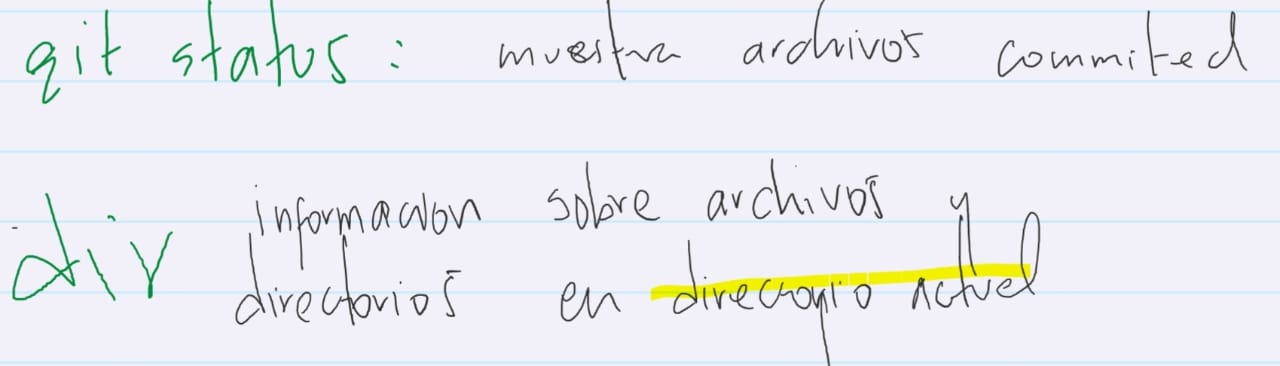 git status: muestra archivos commited
dir información sobre archivos y
directorios en directorio actual